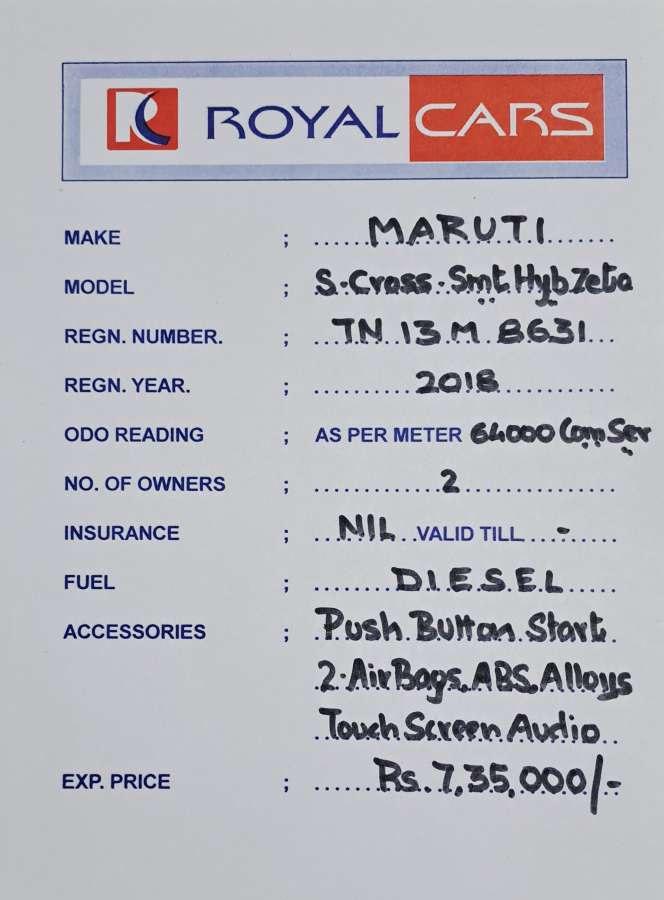 RC ROYAL CARS
MAKE ; MARUTI
MODEL ; S-Cross-Smt Hyb Zeta
REGN. NUMBER. ; TN 13 M 8631
REGN. YEAR. ; 2018
ODO READING ; AS PER METER 64000 Com Ser
NO. OF OWNERS ; 2
INSURANCE ; NIL VALID TILL -
FUEL ; DIESEL
ACCESSORIES ; Push Button Start
2-Air Bags, ABS, Alloys
Touch Screen Audio
EXP. PRICE ; Rs. 7,35,000/-